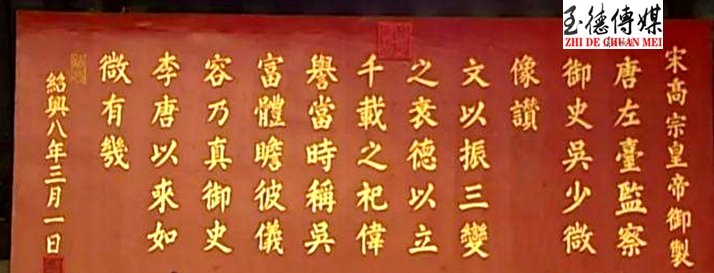 至德傳媒
ZHI DE CHUAN MEI
宋高宗皇帝御製
唐左臺監察
御史吳少微
像讚
文以振三變
之衰德以立
千載之祀偉
譽當時稱吳
富體瞻彼儀
容乃真御史
李唐以來如
微有幾
紹興八年三月一日